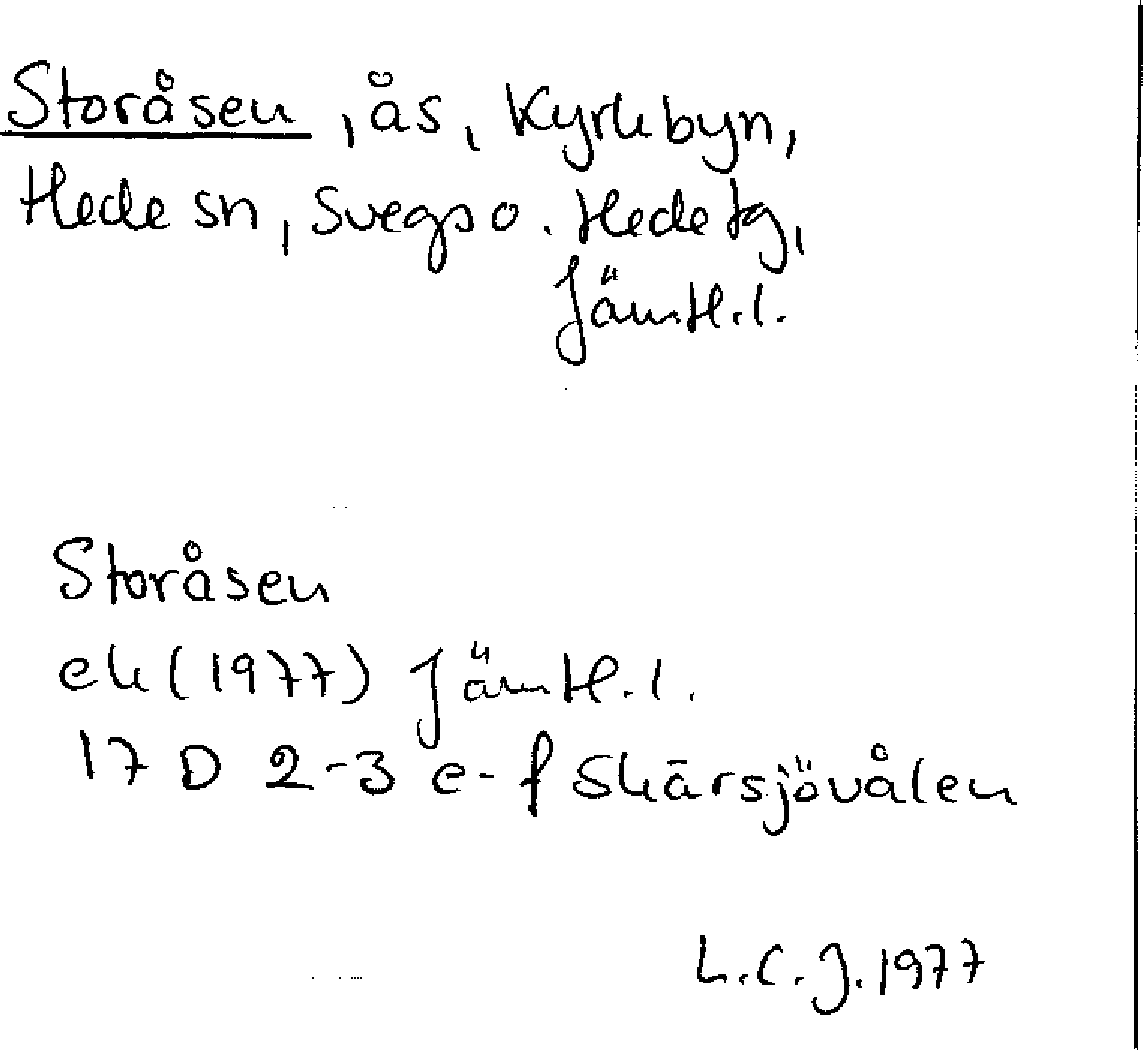 Storåsen, ås, Kyrkbyn,
Hede sn, Svegs o. Hede tg,
Jämtl.l.
Storåsen
ek (1977) Jämtl.l.
17 D 2-3 e-f Skärsjövålen
L.C.J. 1977